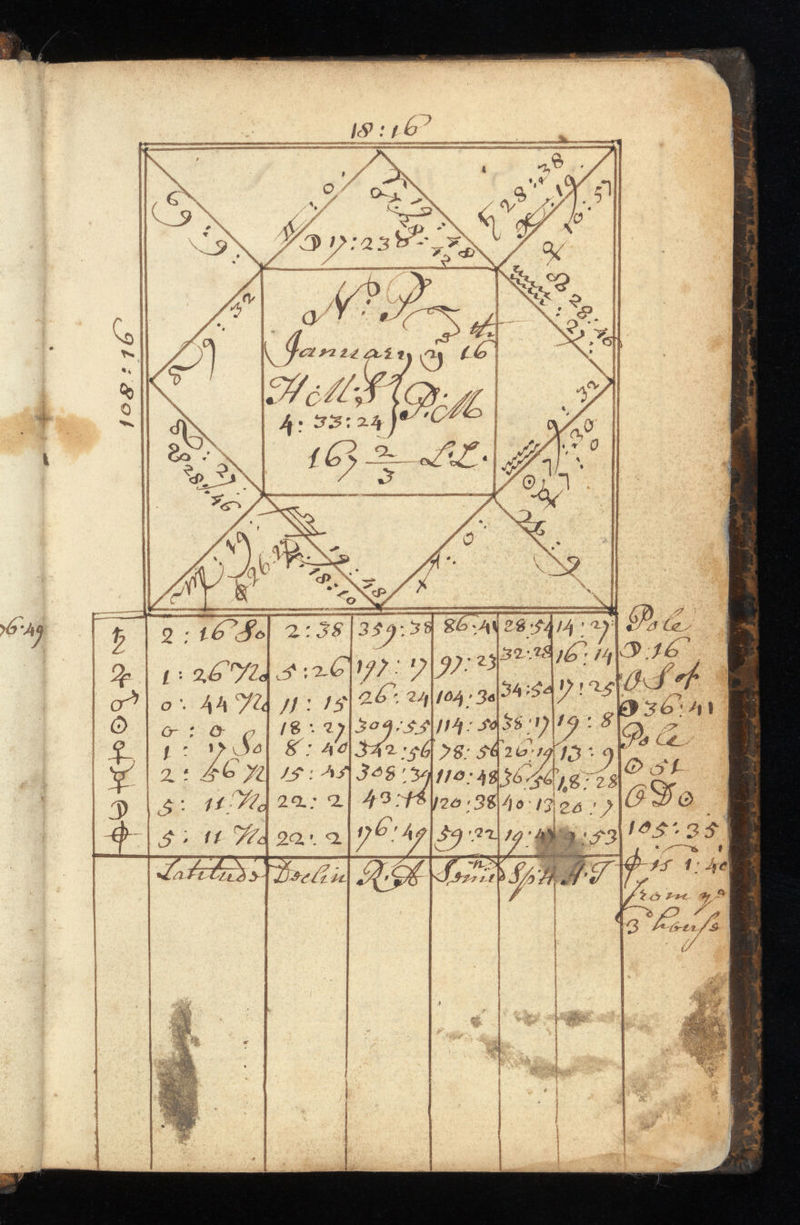 18:16
♋ 9:
♊: 0:
☽ 17:23 ♉
♈ 19:48
♂ 28:42
♄ 28:38
♓: 19:
♀ 10:57
☊ 28:46
♒: 27:
♌ 9:32
108:16
No. P
January ye 16th
H: M: S } P: M
4: 33:24
167 2/3 L:L.
♒ 9:32
☉ 7:30
☿ 7:0
♌: 27:
☋ 28:46
♑: 9
♍: 19:
♎ 19:48
♃: 18:10
♐: 0:
76:49
♄ 2:16 So 2:38 359:38 86:41 28:54 14:27 Pole
♃ 1:26 No 5:26 197:17 97:23 32:28 16:14 ☽:16
♂ 0:44 No 11:15 26:24 104:30 34:50 17:25 OS of
☉ 0:0 18:27 309:55 114:50 38:17 19:8 36:41
♀ 1:17 So 8:40 342:56 78:56 26:19 13:9 Pole
☿ 2:56 N 15:45 308:39 110:48 36:56 18:28 ☉ 51
☽ 5:11 No 22:2 43:18 120:38 40:13 20:7 OD☉
⊕ 5:11 No 22:2 176:49 59:22 19:47 9:53 105:35
Latitude Declin R:A Semid Sp:H H:T ⊕ is 1:40
from ye
3d house